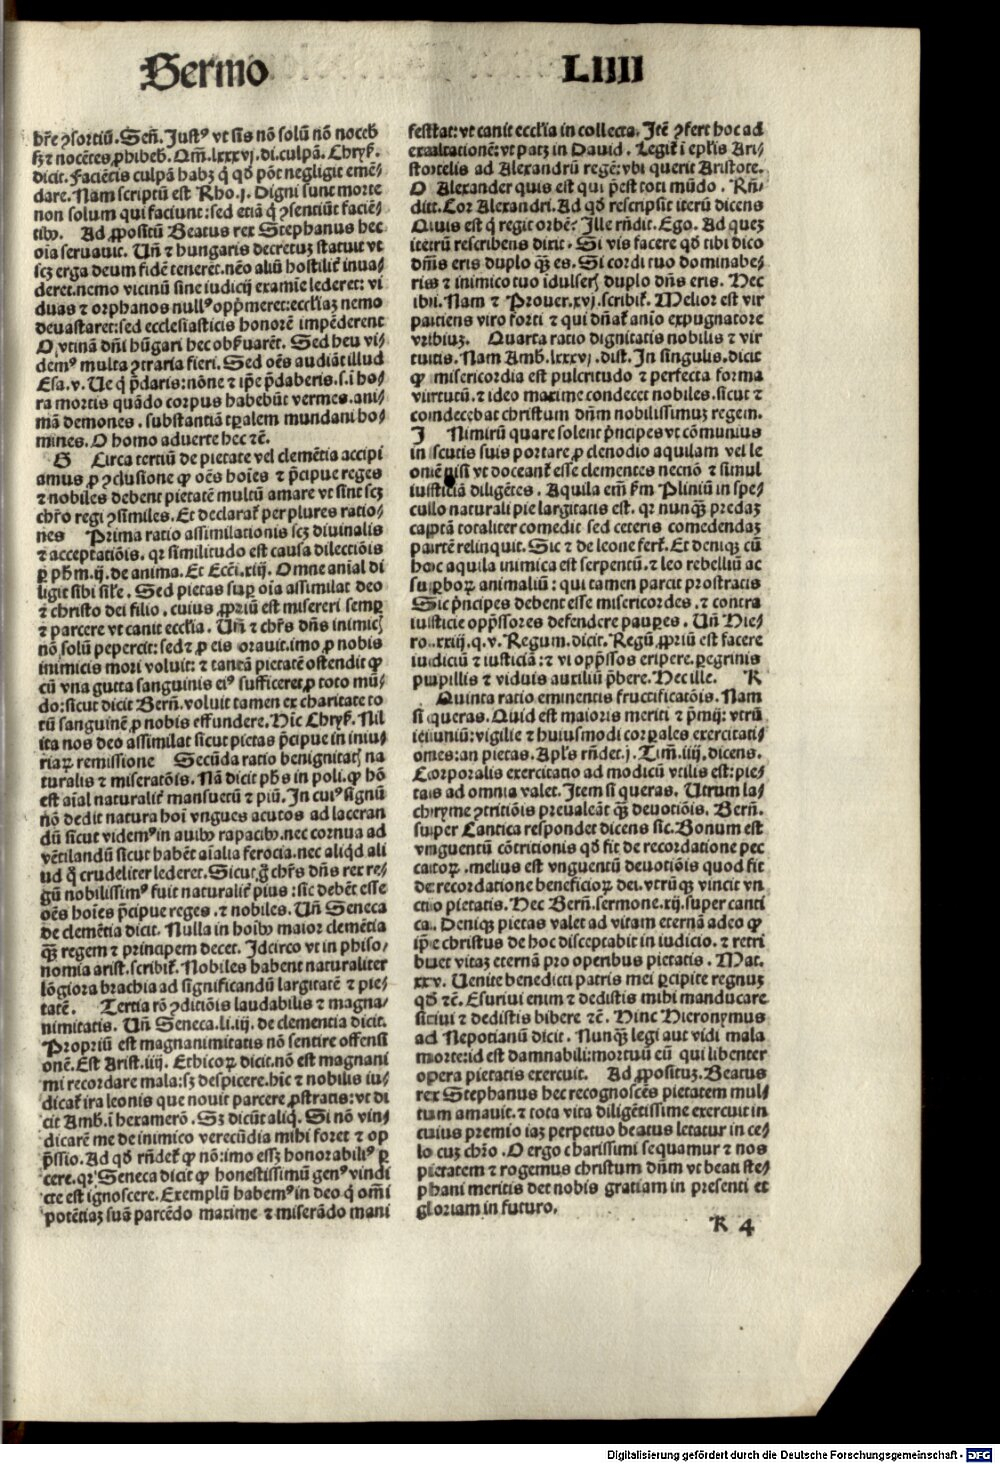 Sermo LIIII
br̄e ꝯsortiū. Señ. Iustꝰ vt sis nō solū nō noceb
sꝫ ⁊ nocētes ꝓhibeb. Qm̄. lxxxvj. di. culpā. Chryſ.
dicit. Faciētis culpā habꝫ q̇ qđ pōt negligit emē⸗
dare. Nam scriptū est Rho. j. Digni sunt morte
non solum qui faciunt: sed etiā q̇ ꝯsentiūt faciē⸗
tibꝰ. Ad ꝓpositū Beatus rex Stephanus hec
oīa seruauit. Uñ ⁊ hungaris decretuꝫ statuit vt
scꝫ erga deum fidē tenerēt. nēo aliū hostilit᷑ inua⸗
deret. nemo vicinū sine iudicij examie lederet: vi
duas ⁊ orphanos nullꝰ opp̄meret: eccl̄iaꝫ nemo
deuastaret: sed ecclesiasticis honorē impēderent
O vtinā dn̄i hūgari hec obẜuarēt. Sed heu vi⸗
demꝰ multa ꝯtraria fieri. Sed oēs audiāt illud
Esa. v. Ue q̇ p̄daris: nōne ⁊ ip̄e p̄daberis. s. ī ho⸗
ra mortis quādo corpus habebūt vermes. ani⸗
mā demones. substantiā tꝑalem mundani ho⸗
mines. O homo aduerte hec ⁊c̄.
G Circa tertiū de pietate vel clemētia accipi
amus ꝓ ꝯclusione ꝙ oēs hoīes ⁊ p̄cipue reges
⁊ nobiles debent pietatē multū amare vt sint scꝫ
chr̄o regi ꝯsimiles. Et declarat᷑ per plures ratio⸗
nes Prima ratio assimilationis scꝫ diuinalis
⁊ acceptatiōis. qr similitudo est causa dilectiōis
ꝑ ph̄m. ij. de anima. Et Ecc̄i. xiij. Omne aīal di
ligit sibi sil̄e. Sed pietas suꝑ oīa assimilat deo
⁊ christo dei filio. cuius ꝓpriū est misereri semꝑ
⁊ parcere vt canit eccl̄ia. Uñ ⁊ chr̄s dn̄s inimicꝭ
nō solū pepercit: sed ⁊ ꝓ eis orauit. imo ꝓ nobis
inimicis mori voluit: ⁊ tantā pietatē ostendit ꝙ
cū vna gutta sanguinis eiꝰ sufficeret ꝓ toto mū⸗
do: sicut dicit Berñ. voluit tamen ex charitate to
tū sanguinē ꝓ nobis effundere. Hīc Chryſ. Nil
ita nos deo assimilat sicut pietas p̄cipue in iniu⸗
riaꝝ remissione Secūda ratio benignitatꝭ na
turalis ⁊ miseratōis. Nā dicit ph̄s in poli. ꝙ hō
est aīal naturalit᷑ mansuetū ⁊ piū. In cuiꝰ signū
nō dedit natura hoī vngues acutos ad laceran
dū sicut videmꝰ in auibꝰ rapacibꝰ. nec cornua ad
vētilandū sicut habēt aīalia ferocia. nec aliq̇d ali
ud q̇ crudeliter lederet. Sicut g̊ chr̄s dn̄s rex re⸗
gū nobilissimꝰ fuit naturalit᷑ pius: sic debēt esse
oēs hoīes p̄cipue reges. ⁊ nobiles. Uñ Seneca
de clemētia dicit. Nulla in hoībꝰ maior clemētia
qꝫ̄ regem ⁊ principem decet. Idcirco vt in phiso⸗
nomia arist. scribit᷑. Nobiles habent naturaliter
lōgiora brachia ad significandū largitatē ⁊ pie⸗
tatē. Tertia rō ꝯditiōis laudabilis ⁊ magna⸗
nimitatis. Uñ Seneca. li. iij. de clementia dicit.
Propriū est magnanimitatis nō sentire offensi
onē. Est Arist. iiij. Ethicoꝝ dicit. nō est magnani
mi recordare mala: sꝫ despicere. hīc ⁊ nobilis iu⸗
dicat᷑ ira leonis que nouit parcere ꝓstratis: vt di
cit Amb. ī hexamerō. Sꝫ dicūt aliq̇. Si nō vin⸗
dicarē me de inimico verecūdia mihi foret ⁊ op
p̄ssio. Ad qđ rn̄det᷑ ꝙ nō: imo essꝫ honorabiliꝰ ꝑ
cere. qr Seneca dicit ꝙ honestissimū genꝰ vindi
cte est ignoscere. Exemplū habemꝰ in deo q̇ om̄i
potētiaꝫ suā parcēdo maxime ⁊ miserādo mani
festat: vt canit eccl̄ia in collecta. Itē ꝯfert hoc ad
exaltationē: vt patꝫ in Dauid. Legit᷑ ī epl̄is Ari⸗
stotelis ad Alexandrū regē: vbi querit Aristote.
O Alexander quis est qui p̄est toti mūdo. Rn̄⸗
dit. Cor Alexandri. Ad qđ rescripsit iterū dicens
Quis est q̇ regit orbē? Ille rn̄dit. Ego. Ad queꝫ
iterū rescribens dixit. Si vis facere qđ tibi dico
dn̄s eris duplo qꝫ̄ es. Si cordi tuo dominabe⸗
ris ⁊ inimico tuo īdulserꝭ duplo dn̄s eris. Hec
ibi. Nam ⁊ Prouer. xvj. scribit᷑. Melior est vir
patiens viro forti ⁊ qui dn̄at᷑ aīo expugnatore
vrbiuꝫ. Quarta ratio dignitatis nobilis ⁊ vir
tutis. Nam Amb. lxxxvj. dist. In singulis. dicit
ꝙ misericordia est pulcritudo ⁊ perfecta forma
virtutū. ⁊ ideo maxime condecet nobiles. sicut ⁊
condecebat christum dn̄m nobilissimuꝫ regem.
I Nimirū quare solent p̄ncipes vt cōmunius
in scutis suis portare ꝓ clenodio aquilam vel le
onē nisi vt doceant᷑ esse clementes necnō ⁊ simul
iusticiā diligētes. Aquila em̄ ẜm Pliniū in spe⸗
culo naturali pie largitatis est. qr nunqꝫ̄ predaꝫ
captā totaliter comedit sed ceteris comedendaꝫ
partē relinquit. Sic ⁊ de leone fert᷑. Et deniqꝫ cū
hoc aquila inimica est serpentū. ⁊ leo rebelliū ac
suꝑboꝝ animaliū: qui tamen parcit prostratis
Sic p̄ncipes debent esse misericordes. ⁊ contra
iusticie opp̄ssores defendere pauꝑes. Uñ Hie⸗
ro. xxiij. q. v. Regum. dicit. Regū ꝓpriū est facere
iudiciū ⁊ iusticiā: ⁊ vi opp̄ssos eripere. ꝑegrinis
pupillis ⁊ viduis auxiliū p̄bere. Hec ille. K
Quinta ratio eminentis fructificatōis. Nam
si queras. Quid est maioris meriti ⁊ p̄mij: vtrū
ieiuniū: vigilie ⁊ huiusmodi corꝑales exercitati⸗
ones: an pietas. Apl̄s rn̄det. j. Tim̄. iiij. dicens.
Corporalis exercitatio ad modicū vtilis est: pie⸗
tas ad omnia valet. Item si queras. Utrum la⸗
chryme ꝯtritiōis preualeāt qꝫ̄ deuotiōis. Berñ.
super Cantica respondet dicens sic. Bonum est
vnguentū cōtritionis qđ fit de recordatione pec
catoꝝ. melius est vnguentū deuotiōis quod fit
de recordatione beneficioꝝ dei. vtrūqꝫ vincit vn
ctio pietatis. Hec Berñ. sermone. xij. super canti
ca. Deniqꝫ pietas valet ad vitam eternā adeo ꝙ
ip̄e christus de hoc disceptabit in iudicio. ⁊ retri
buet vitaꝫ eternā pro operibus pietatis. Mat.
xxv. Uenite benedicti patris mei ꝑcipite regnuꝫ
qđ ⁊c̄. Esuriui enim ⁊ dedistis mihi manducare
sitiui ⁊ dedistis bibere ⁊c̄. Hinc Hieronymus
ad Nepotianū dicit. Nunqꝫ̄ legi aut vidi mala
morte: id est damnabili: mortuū eū qui libenter
opera pietatis exercuit. Ad ꝓpositūꝫ. Beatus
rex Stephanus hec recognoscēs pietatem mul⸗
tum amauit. ⁊ tota vita diligētissime exercuit in
cuius premio iaꝫ perpetuo beatus letatur in ce⸗
lo cuꝫ chr̄o. O ergo charissimi sequamur ⁊ nos
pietatem ⁊ rogemus christum dn̄m vt beati ste⸗
phani meritis det nobis gratiam in presenti et
gloriam in futuro.
K 4
Digitalisierung gefördert durch die Deutsche Forschungsgemeinschaft - DFG